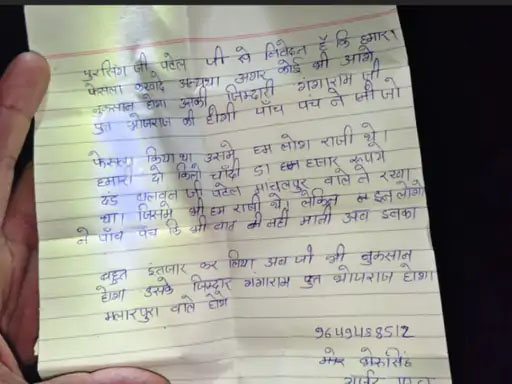 पुरसिंग जी पटेल जी से निवेदन है कि हमारा
फेसला करवादे अन्यथा अगर कोई भी आगे
नुकसान होगा उसकी जिम्दारी गंगाराम जी
पुत भोपराज की होगी पाँच पंच ने जो
फेसला किया था उसमे हम लोग राजी थे।
हमारा दो किलो चाँदी 51 हजार रूपये
दंड जी पटेल वाले ने रखा
था। जिसमे भी हम राजी थे। लेकिन इन लोगो
ने पाँच पंच कि भी बात नही मानी अब इनका
बहुत इंतजार कर लिया अब जो भी नुकसान
होगा उसके जिम्दार गंगाराम पुत भोपराज होगा
मलारपुरा वाले होगे
भेरुसिंह